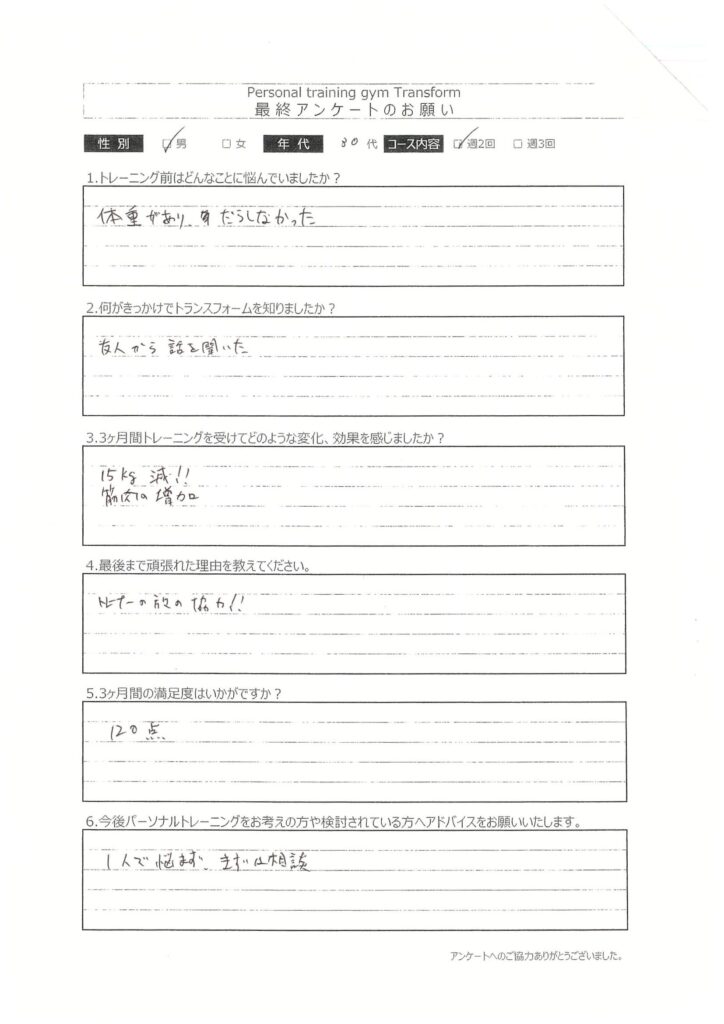 Personal training gym Transform
最終アンケートのお願い
性別 □男 □女 年代 30代 コース内容 □週2回 □週3回
1.トレーニング前はどんなことに悩んでいましたか？
体重があり、だらしなかった
2.何がきっかけでトランスフォームを知りましたか？
友人から話を聞いた
3.3ヶ月間トレーニングを受けてどのような変化、効果を感じましたか？
15kg 減!!
筋肉の増加
4.最後まで頑張れた理由を教えてください。
トレーナーの方の協力!!
5.3ヶ月間の満足度はいかがですか？
120点
6.今後パーソナルトレーニングをお考えの方や検討されている方へアドバイスをお願いいたします。
1人で悩まず、まずは相談
アンケートへのご協力ありがとうございました。